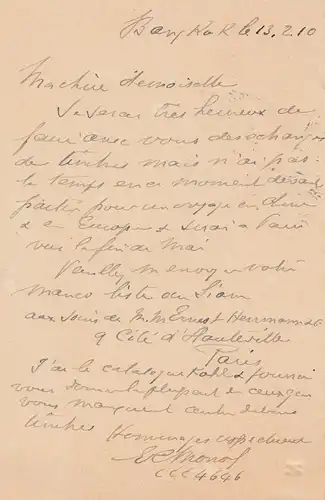 Bangkok le 13.2.10
Ma chère Demoiselle
Je serai très heureux de
faire avec vous des échanges
de timbres mais n'ai pas
le temps en ce moment devant
partir pour un voyage en
& en Europe & serai à Paris
vers la fin de Mai
Veuillez m'envoyer votre
manco liste du Siam
aux soins de M.M Ernest Herrmann & C
9 Cité d'Hauteville
Paris
J'ai le catalogue Kohl & fournir
vous la plupart de ceux que
vous manquent contre
timbres
Hommages respectueux
CCC 4646